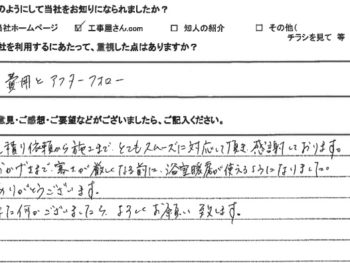 のようにして当社をお知りになられましたか？
当社ホームページ ☑ 工事屋さん.com □ 知人の紹介 □ その他（
チラシを見て 等
社を利用するにあたって、重視した点はありますか？
費用とアフターフォロー
意見・ご感想・ご要望などがございましたら、ご記入ください。
積り依頼から施工まで、とてもスムーズに対応して頂き感謝しております。
おかげさまで、寒さが厳しくなる前に、浴室暖房が使えるようになりました。
ありがとうございます。
また何かございましたら、よろしくお願い致します。